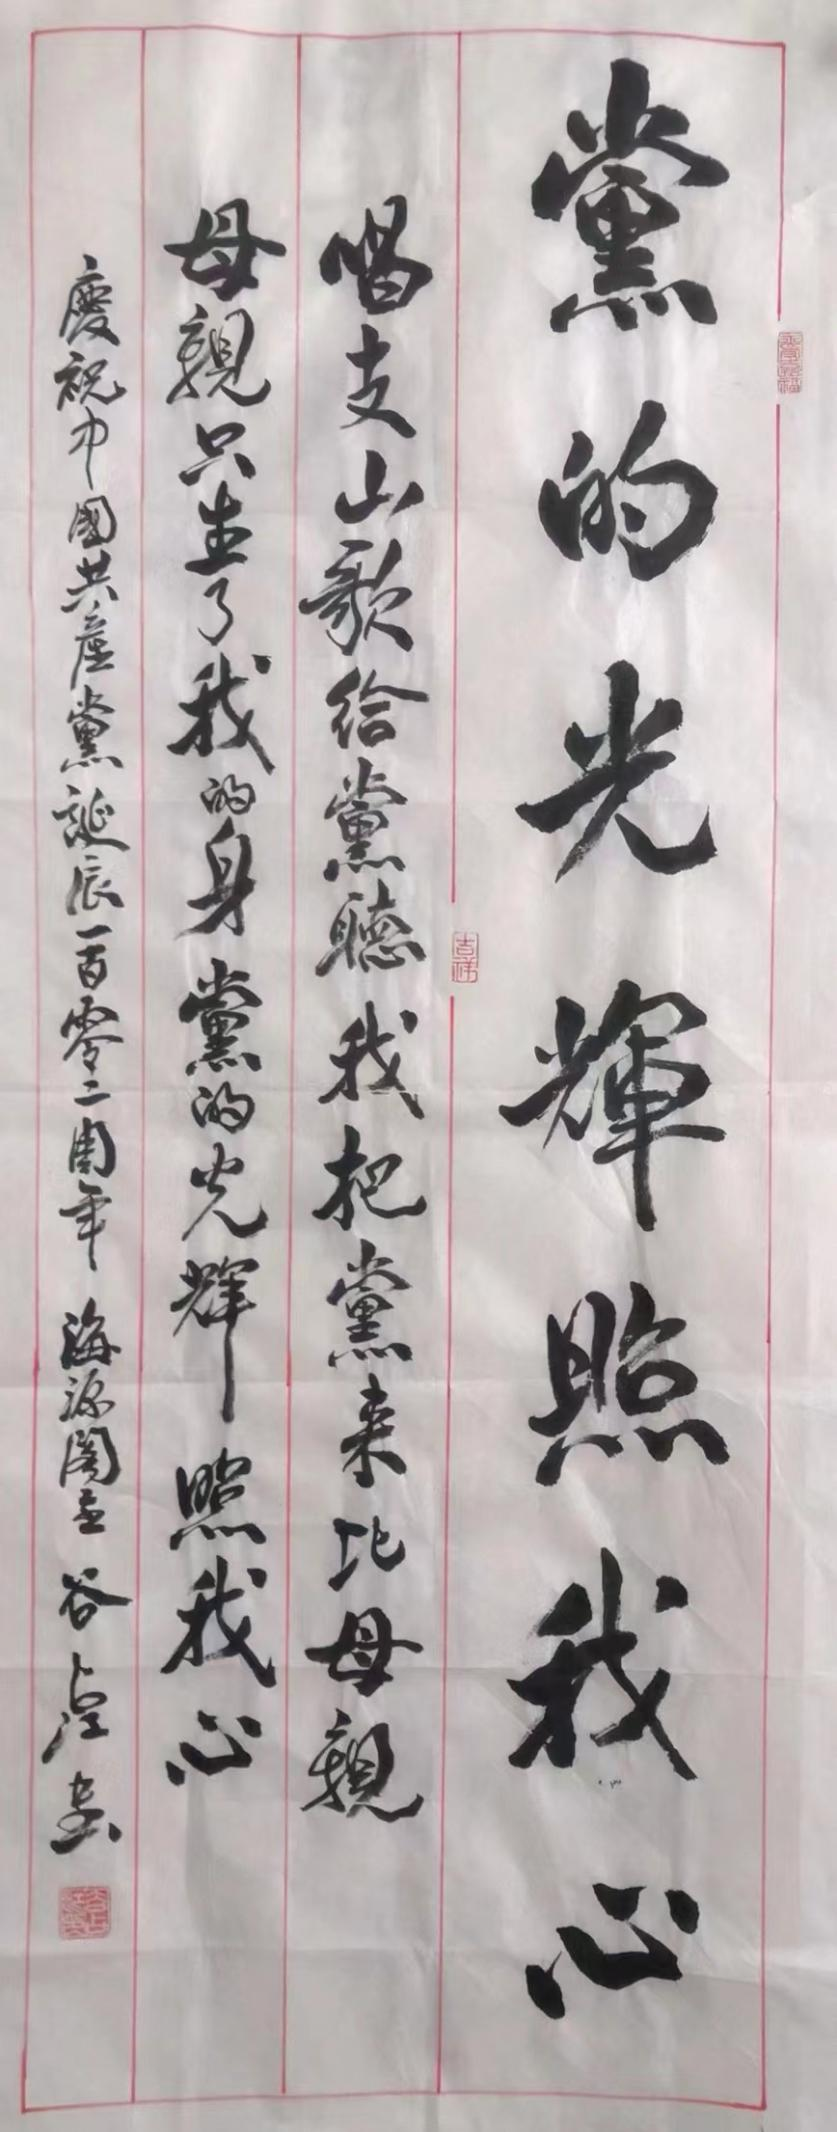 黨的光輝照我心
唱支山歌給黨聽我把黨来比母親
母親只生了我的身黨的光輝照我心
慶祝中國共產黨誕辰一百零二周年 海源閣主 谷占江書
吉祥